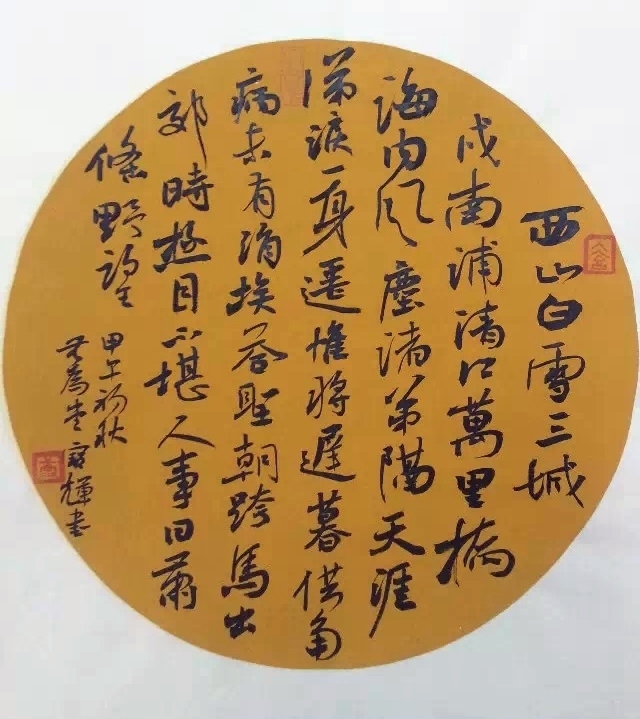 西山白雪三城
戍南浦清江萬里橋
海内风塵诸弟隔天涯
涕淚一身遥惟將遲暮供多
病未有涓埃答聖朝跨馬出
郊時極目不堪人事日蕭
條野望
甲午初秋
輝書